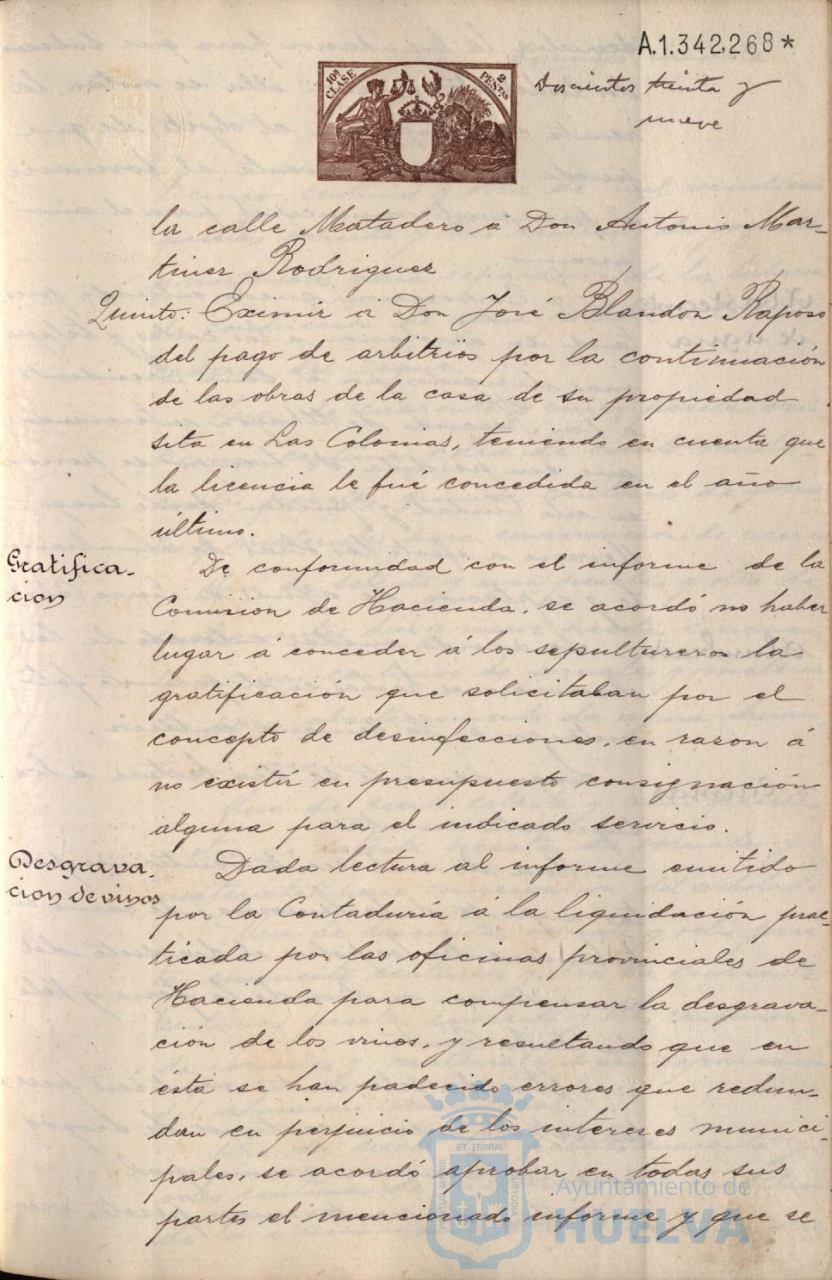 A.1.342.268*
10ª CLASE
2 PESETAS
Doscientos treinta y
nueve
la calle Matadero á Don Antonio Mar-
tinez Rodriguez
Quinto: Eximir á Don José Blandon Raposo
del pago de arbitrios por la continuación
de las obras de la casa de su propiedad
sita en Las Colonias, teniendo en cuenta que
la licencia le fué concedida en el año
último.
Gratifica-
cion
De conformidad con el informe de la
Comision de Hacienda, se acordó no haber
lugar á conceder á los sepultureros la
gratificación que solicitaban por el
concepto de desinfecciones, en razon á
no existir en presupuesto consignación
alguna para el indicado servicio.
Desgrava-
cion de vinos
Dada lectura al informe emitido
por la Contaduría á la liquidación prac-
ticada por las oficinas provinciales de
Hacienda para compensar la desgrava-
ción de los vinos, y resultando que en
ésta se han padecido errores que redun-
dan en perjuicio de los intereses munici-
pales, se acordó aprobar en todas sus
partes el mencionado informe y que se
ET TERRAE
Ayuntamiento de
HUELVA